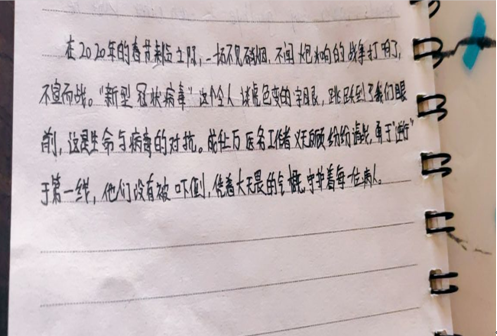 在2020年的春节刚刚立朋,一场不见硝烟,不闻炮响的战争打响了,
不宣而战。"新型冠状病毒"这个令人谈虎色变的字眼,跳跃到了我们眼
前,这是生命与病毒的对抗。成千上万医务工作者义无反顾纷纷请战,勇于"逆行"
于第一线,他们没有被吓倒,凭着大无畏的气概,守护着每一位病人。